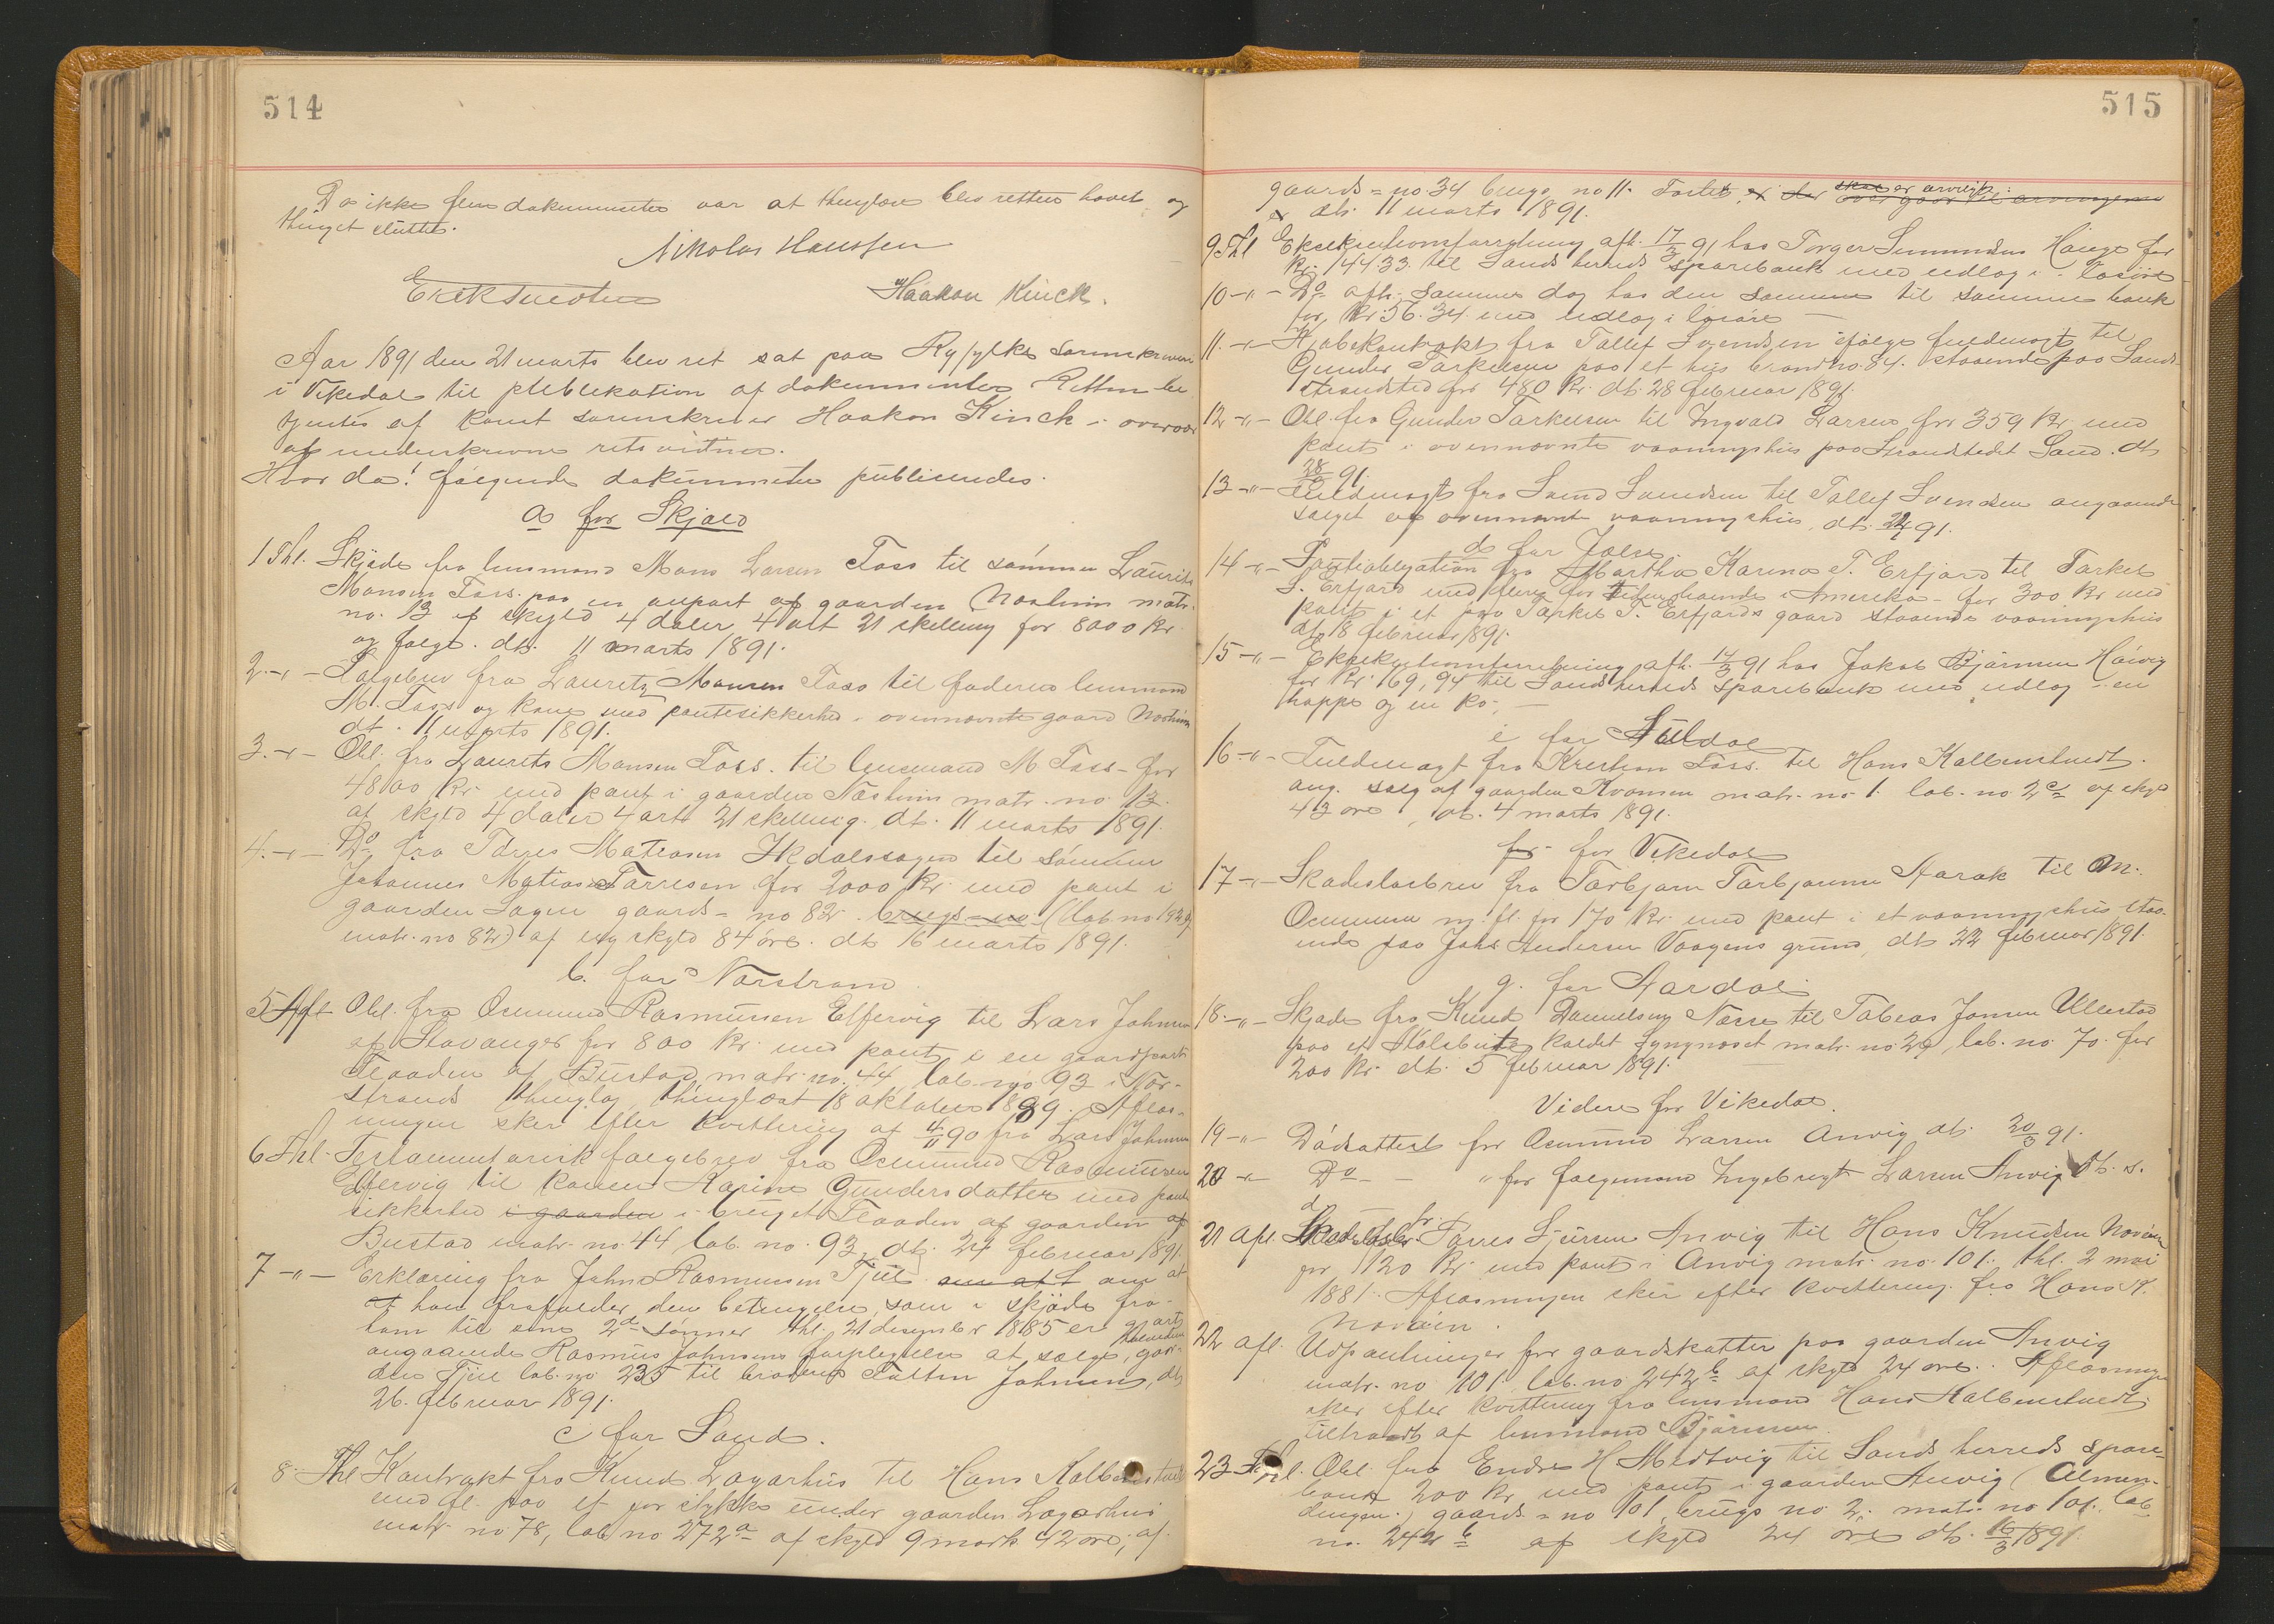 514
Da ikke flere dokumenter var at thinglæse blev retten hævet og
thinget sluttet.
Nikolai Hanssen
Haakon Kinck.
Aar 1891 den 21 marts blev ret sat paa Ryfylke sorenskriveri
i Vikedal til publikation af dokumenter. Retten be
tjentes af konst sorenskriver Haakon Kinck i overvær
af underskrevne retsvidner.
Hvor da! følgende dokumenter publiceredes.
a for Skjold
1 Thl. Skjøde fra lensmand Mons Larsen Foss til sønnen Laurits
Monsen Foss. paa en anpart af gaarden matr.
no. 13 af skyld 4 daler 4 ort 21 skilling for 8000 kr.
og folge. dt. 11 marts 1891.
2. -"- Folgebrev fra Lauritz Monsen Foss til faderen lensmand
M. Foss og kone med pantesikkerhed i ovennævnte gaard
dt. 11 marts 1891.
3. -"- Obl. fra Laurits Monsen Foss. til lensmand M Foss - for
4800 kr. med pant i gaarden matr. no. 13.
af skyld 4 daler 4 ort 21 skilling. dt. 11 marts 1891.
4. -"- Do fra Torres Matiasen til sønnen
Johannes Matias Torresen for 2000 kr. med pant i
gaarden gaards-no 82. brugs-no (lab. no 192
matr. no 82) af ny skyld 84 øre. dt. 16 marts 1891.
b. for Nærstrand
5 Afl Obl. fra Osmund Rasmussen Elfervig til Lars Johnsen
af Stavanger for 800 kr. med pant i en gaardpart
Flaaden af Bustad matr. no. 44 lab. no 93 i Nær-
strands thinglag, thinglæst 18 oktober 1889. Aflæs-
ningen sker efter kvittering af 4/11 90 fra Lars Johnsen
6 Thl. Testamentarisk folgebrev fra Osmund Rasmussen
Elfervig til konen Karine Gundersdatter med pante
sikkerhed i gaarden i bruget Flaaden af gaarden af
Bustad matr. no 44 lab. no. 93, dt. 24 februar 1891.
7 -"- Erklæring fra John Rasmussen om at
at han frafalder den betingelse, som i skjøde fra
ham til sine 2de sønner thl. 21 desember 1885 er gjort
angaaende Rasmus Johnsens forpligtelse at sælge gaar-
den lab. no 235 til broderen Johnsen, dt.
26. februar 1891.
c for Sand.
8. Thl Kontrakt fra Knud Lagarhus til Hans
med fl. paa et jor stykke under gaarden Lagarhus
matr. no 78, lab. no 272a af skyld 9 mark 42 øre, af
515
gaards-no. 34 brugs no 11.
dt. 11 marts 1891.
9 Thl Eksekutionsforretning afh. 17/3 91 hos Torger Hauge for
kr. 144.33. til Sands herreds sparebank med udlæg i løsøre
10 -"- Do afh. samme dag hos den samme til samme bank
for kr. 56.34. med udlæg i løsøre
11. -"- Kjøbekontrakt fra Tollef Svendsen ifølge fuldmagt til
Gunder Torkelsen paa et hus brand no. 84. staaende paa Sands
strandsted for 480 kr. dt. 28 februar 1891.
12 -"- Obl. fra Gunder Torkelsen til Ingvald Larsen for 359 kr. med
pant i ovennævnte vaaningshus paa Strandstedt Sand. dt.
28/2 91.
13 -"- Fuldmagt fra Svend Svendsen til Tollef Svendsen angaaende
salget af ovennævnte vaaningshus, dt. 91.
d for Jælse.
14 -"- Pantobligation fra Martha Karina T. Erfjord til Torkel
S. Erfjord med flere for Amerika - for 300 kr. med
pant i et paa Torkel T. Erfjords gaard staaende vaaningshus
dt. 18 februar 1891.
15 -"- Eksekutionsforretning afh. 17/3 91 hos Jakob Bjørnsen
for kr. 169,94 til Sands herreds sparebank med udlæg i en
hoppe og en ko.
e for Suldal
16 -"- Fuldmagt fra Kristian Foss. til Hans Kallbenstvedt.
ang. salg af gaarden Kvamen matr. no 1. lab. no 2c af skyld
43 øre, dt. 4 marts 1891.
f for Vikedal
17 -"- Skadesløsbrev fra Torbjørn Torbjørnsen Aarak til Om.
Osmunsen m. fl. for 170 kr. med pant i et vaaningshus staa-
ende paa Johs Andersen Vaagens grund, dt. 22 februar 1891.
g. for Aardal
18. -"- Skjøde fra Knud Danielsen Næsse til Tobias Jonsen Ullestad
paa et kaldet matr. no 29, lab. no. 70. for
200 kr. dt. 5 februar 1891.
Videre for Vikedal.
19 -"- Dødsattest for Osmund Larsen Anvig dt. 20/3 91.
20 -"- Do - - " for folgemand Ingebregt Larsen Anvig dt. s.
d.
21 afl. Skadesløsbr. fr. Torres Anvig til Hans Knudsen
for 120 kr. med pant i Anvig matr. no. 101. thl. 2 mai
1881. Aflæsningen sker efter kvittering fra Hans K.
22 afl. Udpantninger for gaardskatter paa gaarden Anvig
matr. no 101 lab. no 242b af skyld 24 øre. Aflæsningen
sker efter kvittering fra lensmand Hans Kallbenstvedt
tiltraadt af lensmand Bjørnsen.
23 Thl. Obl. fra Endre H Medhvig til Sands herreds spare-
bank 200 kr. med pant i gaarden Anvig (Almen-
dingen) gaards-no 101, brugs no 2. matr. no 101. lab.
no. 242 b af skyld 24 øre dt. 16/3 1891.